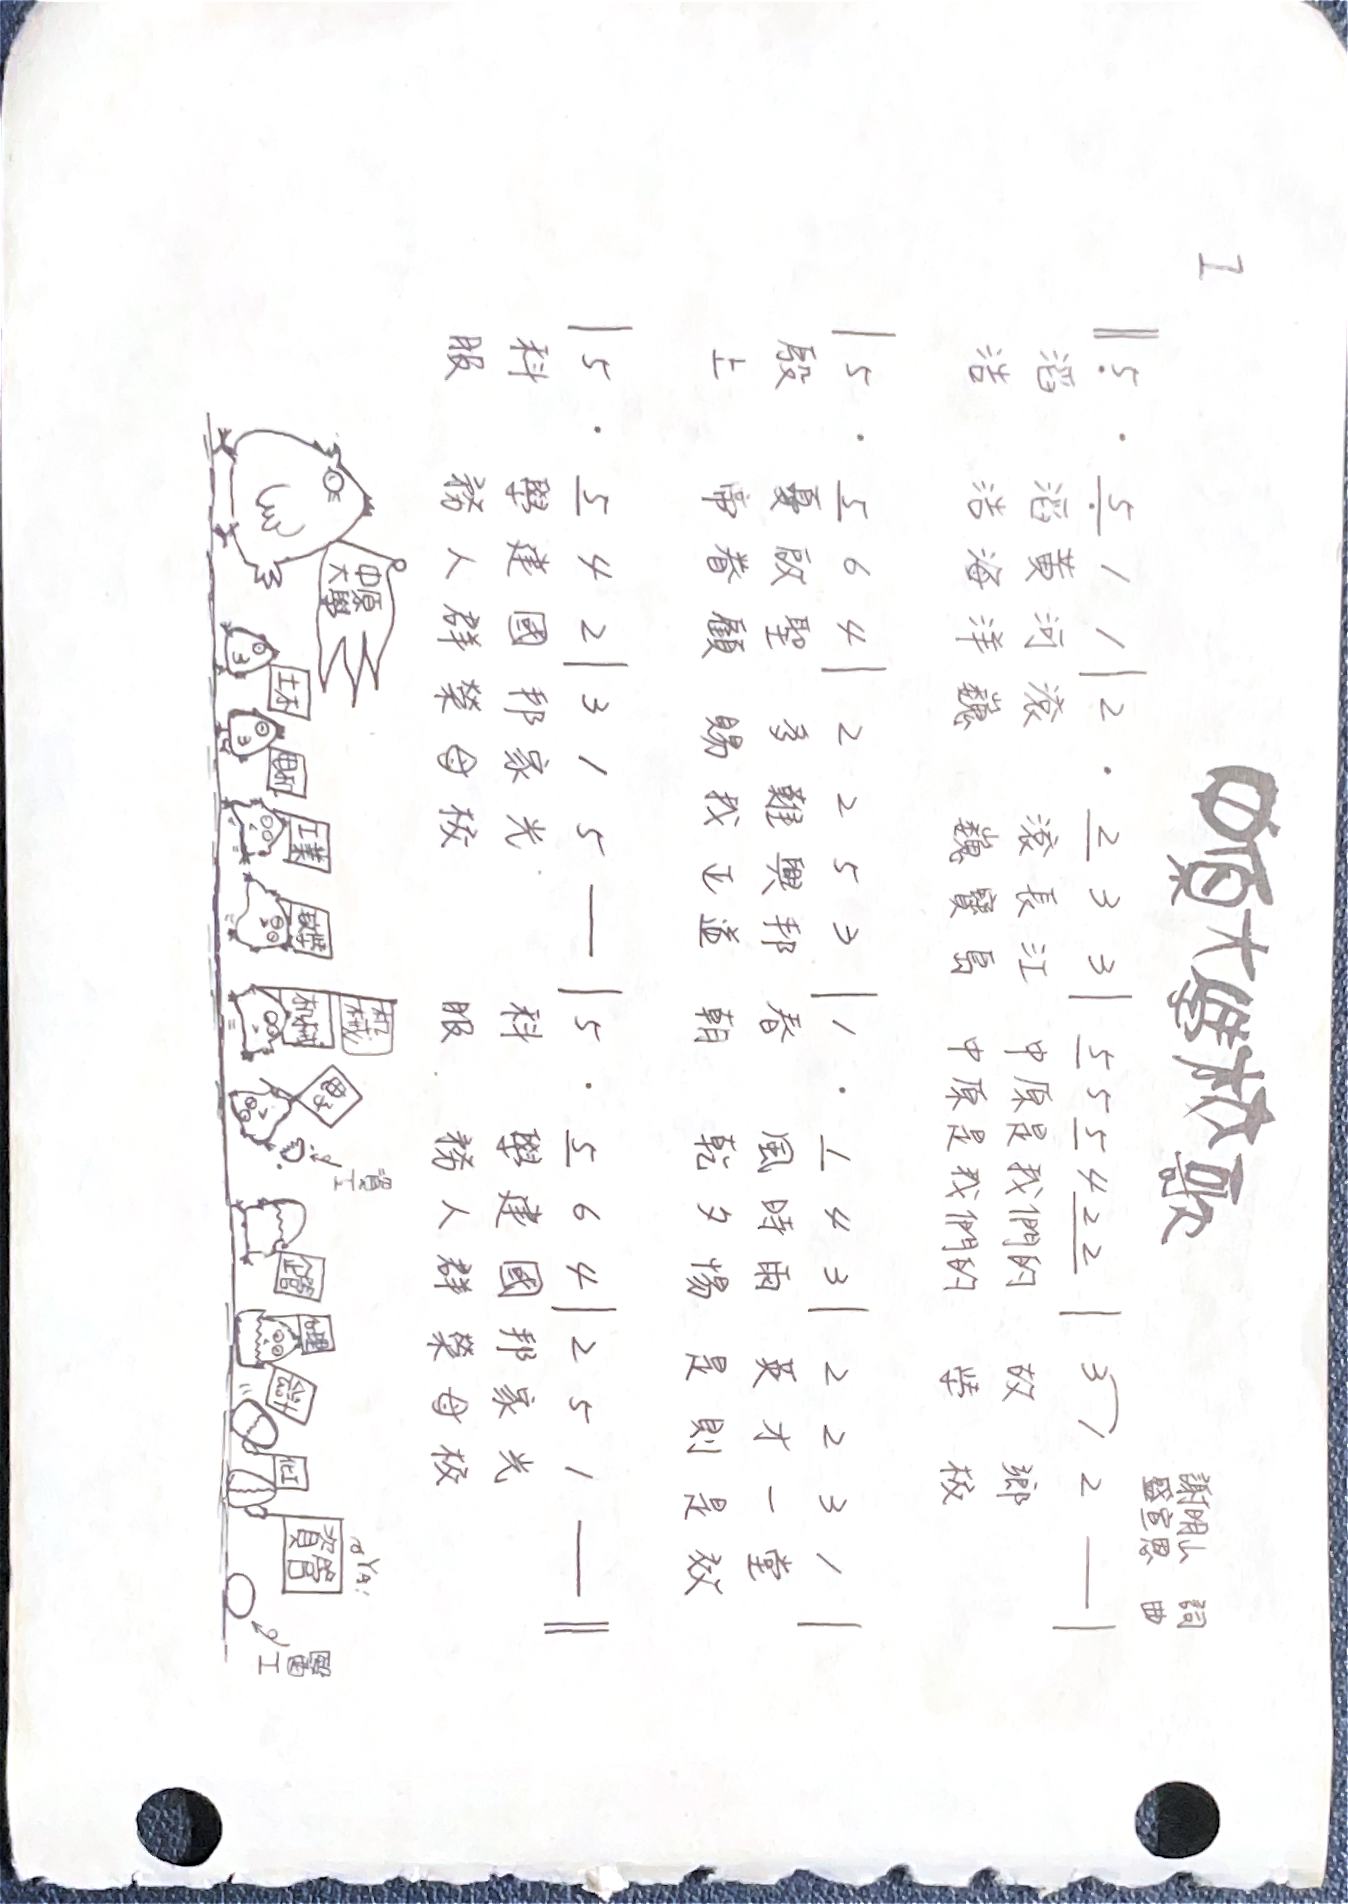 1
中原大學校歌
謝明山 詞
盛宣恩 曲
‖ 5 · 5 1 1 | 2 · 2 3 3 | 5 5 5 4 2 2 | 3 1 2 — |
滔 滔黃河滾 滾長江 中原是我們的 故 鄉
浩 浩海洋巍 巍寶島 中原是我們的 學 校
| 5 · 5 6 4 | 2 2 5 3 | 1 · 1 4 3 | 2 2 3 1 |
殷 憂啟聖 多難興邦 春 風時雨 英才一堂
上 帝眷顧 賜我正道 朝 乾夕惕 是則是效
| 5 · 5 4 2 | 3 1 5 — | 5 · 5 6 4 | 2 5 1 — ‖
科 學建國 邦家光 科 學建國 邦家光
服 務人群 榮母校 服 務人群 榮母校
中原
大學
土木
电机
工業
數學
机械
机械
电子
資工
企管
心理
会計
化工
YA!
資管
醫工